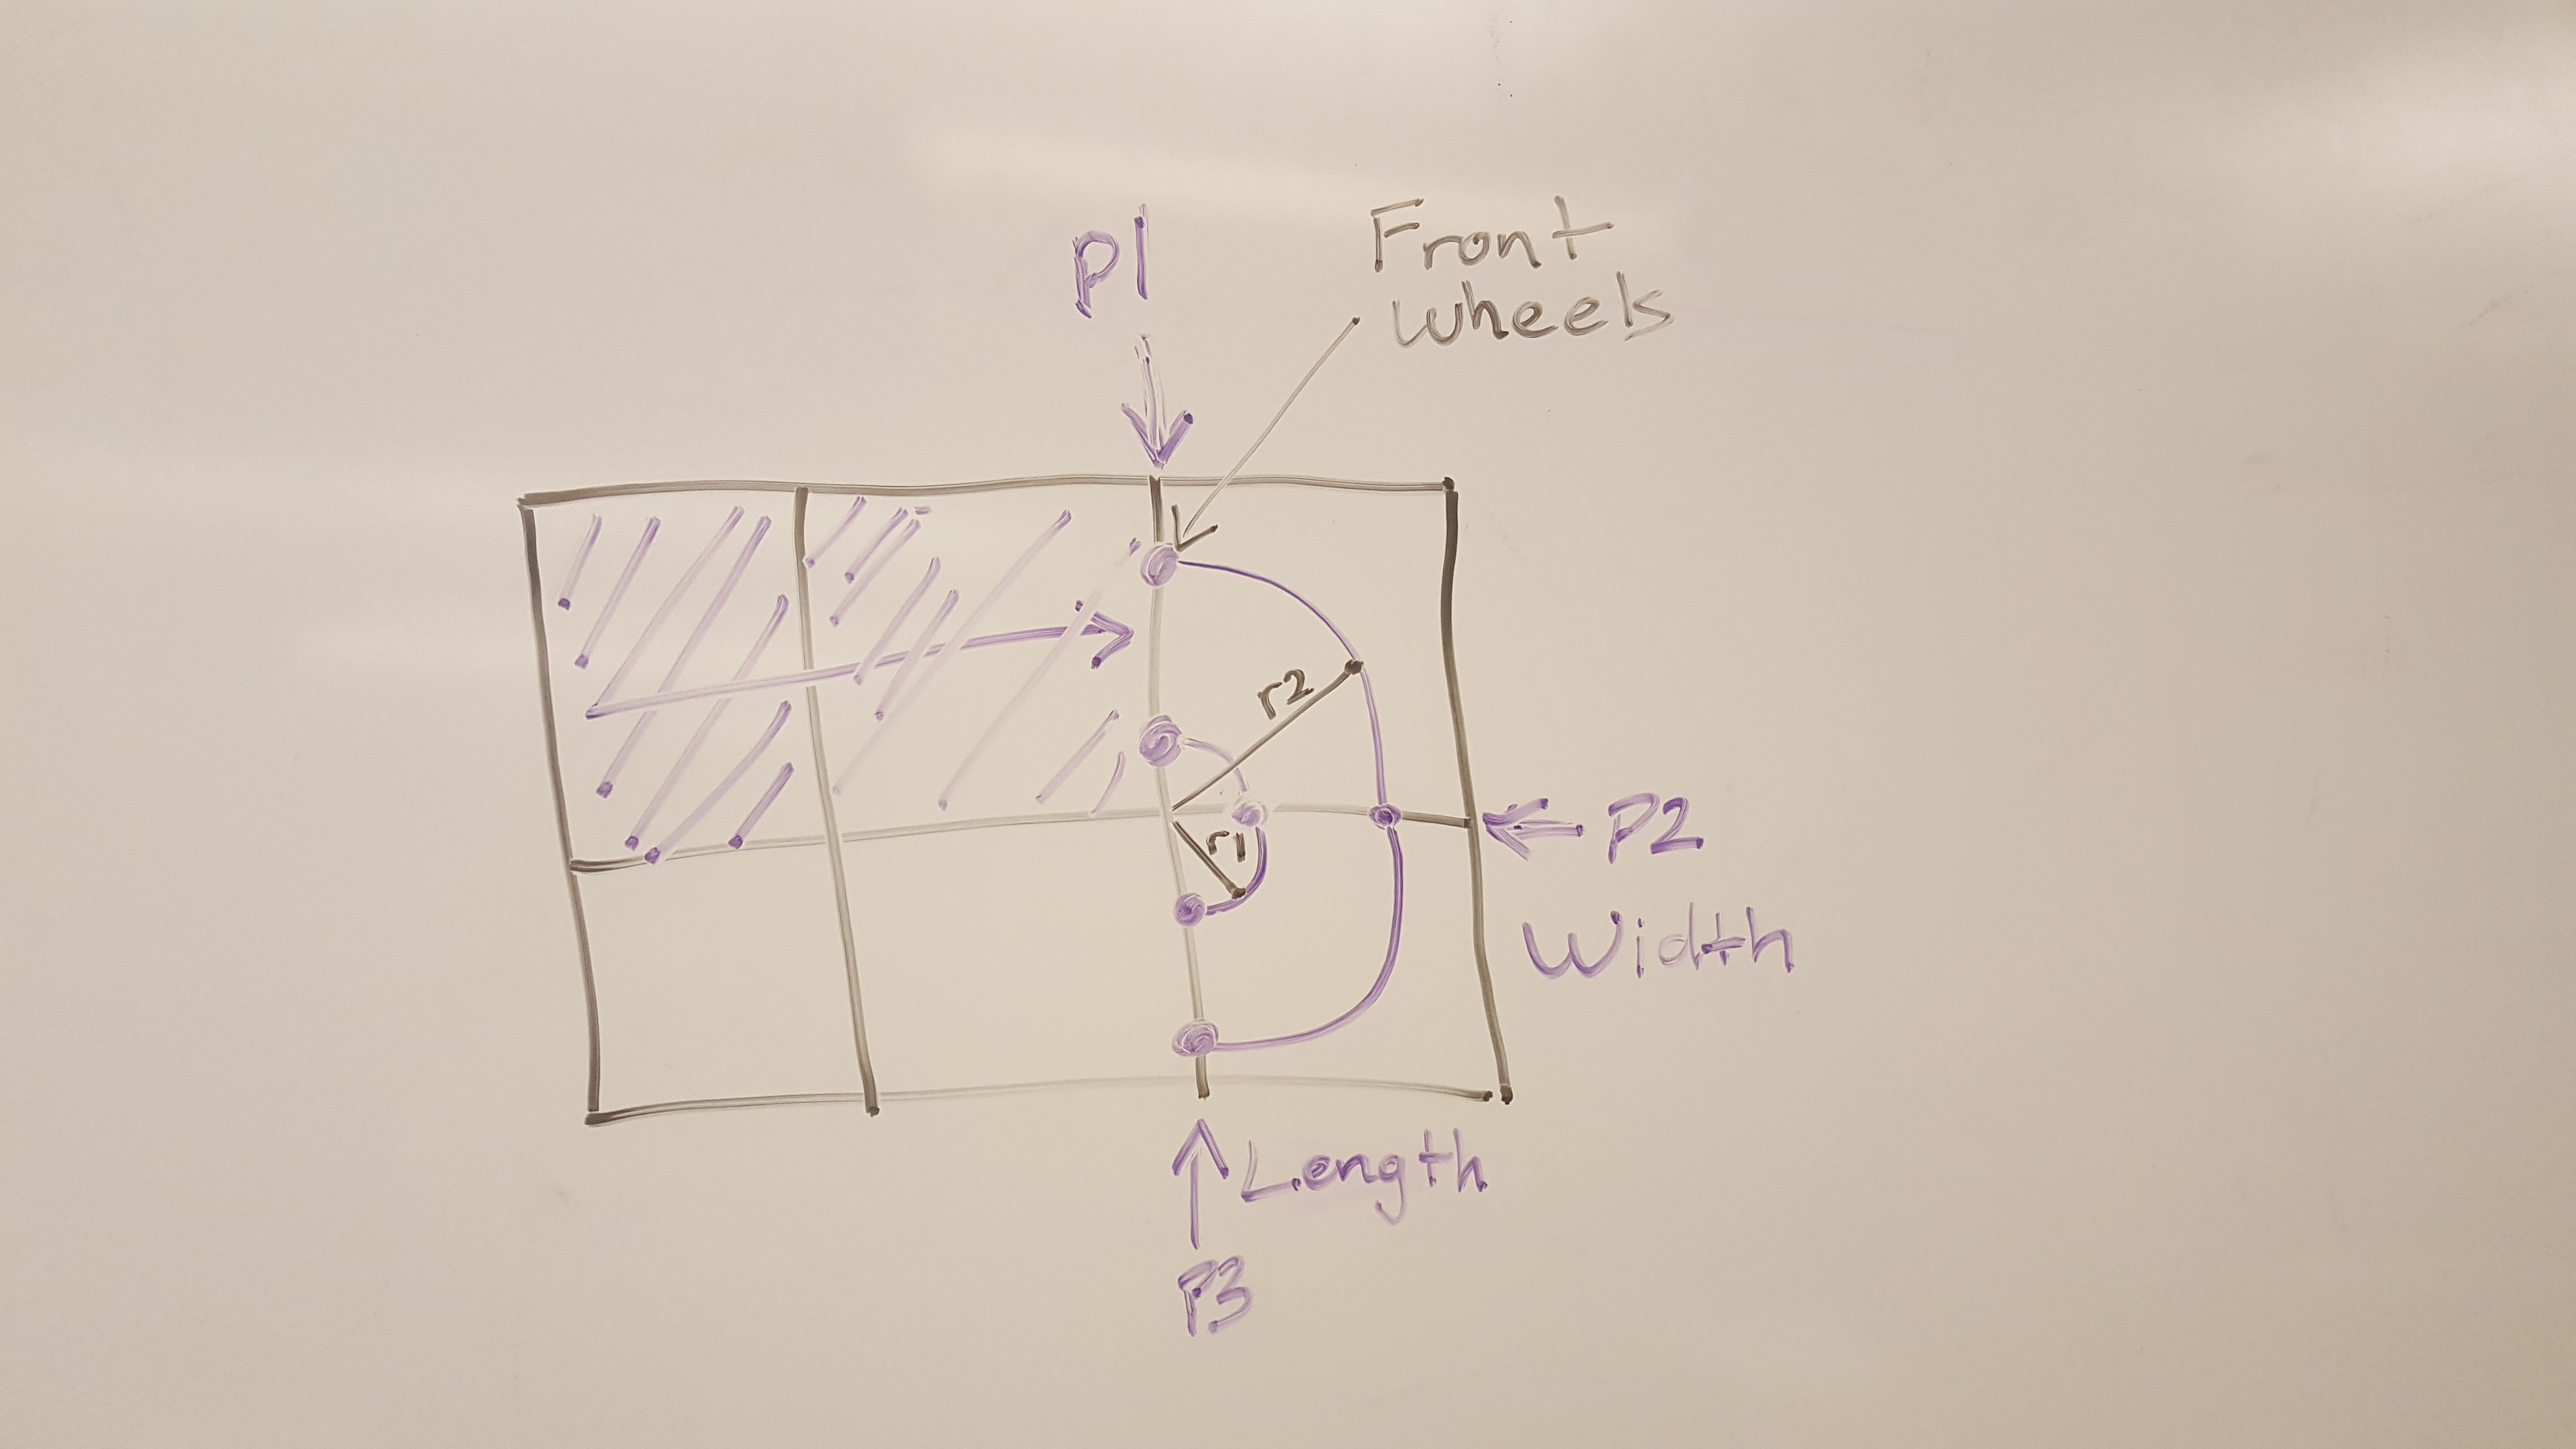 P1
Front
wheels
r2
r1
P2
Width
Length
P3